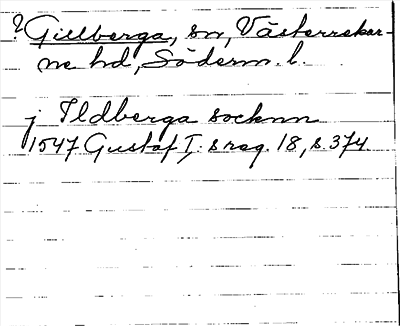 ? Gillberga, sn, Västerrekar-
ne hd, Söderm. l.
j Ildberga socknn
1547 Gustaf I:s reg. 18, s. 374